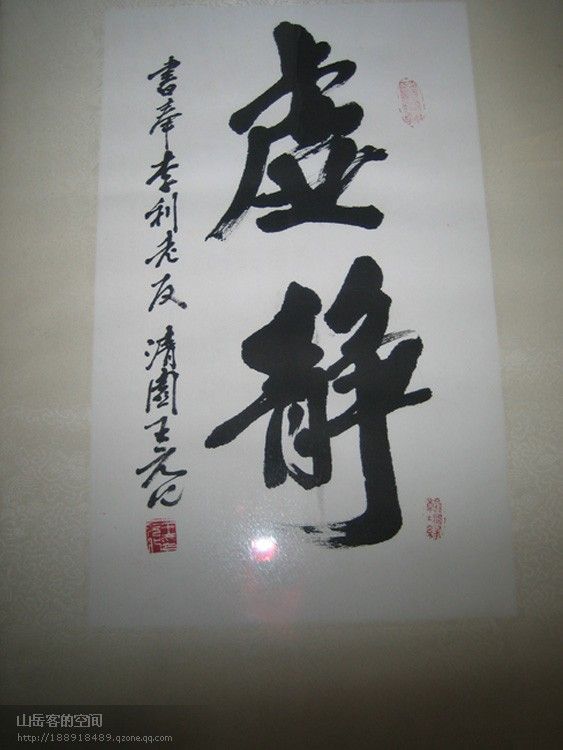 虚静
书奉李利老友 清园王元化
山岳客的空间
http://188918489.qzone.qq.com